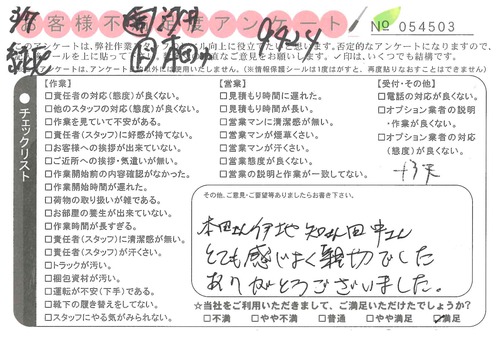 お客様不満足度アンケート
No 054503
3/7
このアンケートは、弊社作業スタッフのスキル向上に役立てたいと思います。否定的なアンケートになりますので、
直なご意見をお願いします。✓印は、いくつでも結構です。
アンケートは、アンケート以外には使用いたしません。(※情報保護シールは1度はがすと、再度貼りなおすことはできません)
チェックリスト
【作業】
□責任者の対応(態度)が良くない。
□他のスタッフの対応(態度)が良くない。
□作業を見ていて不安がある。
□責任者(スタッフ)に好感が持てない。
□お客様への挨拶が出来ていない。
□ご近所への挨拶・気遣いが無い。
□作業開始前の内容確認がなかった。
□作業開始時間が遅れた。
□荷物の取り扱いが雑である。
□お部屋の養生が出来ていない。
□作業時間が長すぎる。
□責任者(スタッフ)に清潔感が無い。
□責任者(スタッフ)が汗くさい。
□トラックが汚い。
□梱包資材が汚い。
□運転が不安(下手)である。
□靴下の履き替えをしてない。
□スタッフにやる気がみられない。
【営業】
□見積もり時間に遅れた。
□見積もり時間が長い。
□営業マンに清潔感が無い。
□営業マンが煙草くさい。
□営業マンが汗くさい。
□営業態度が良くない。
□営業の説明と作業が一致してない。
【受付・その他】
□電話の対応が良くない。
□オプション業者の説明
・作業が良くない。
□オプション業者の対応
(態度)が良くない。
その他、ご意見・ご要望等ありましたらお書き下さい。
本田さん伊地知さん田中さん
とても感じよく親切でした
ありがとうございました。
☆当社をご利用いただきまして、ご満足いただけたでしょうか?
□不満 □やや不満 □普通 □やや満足 ☑満足